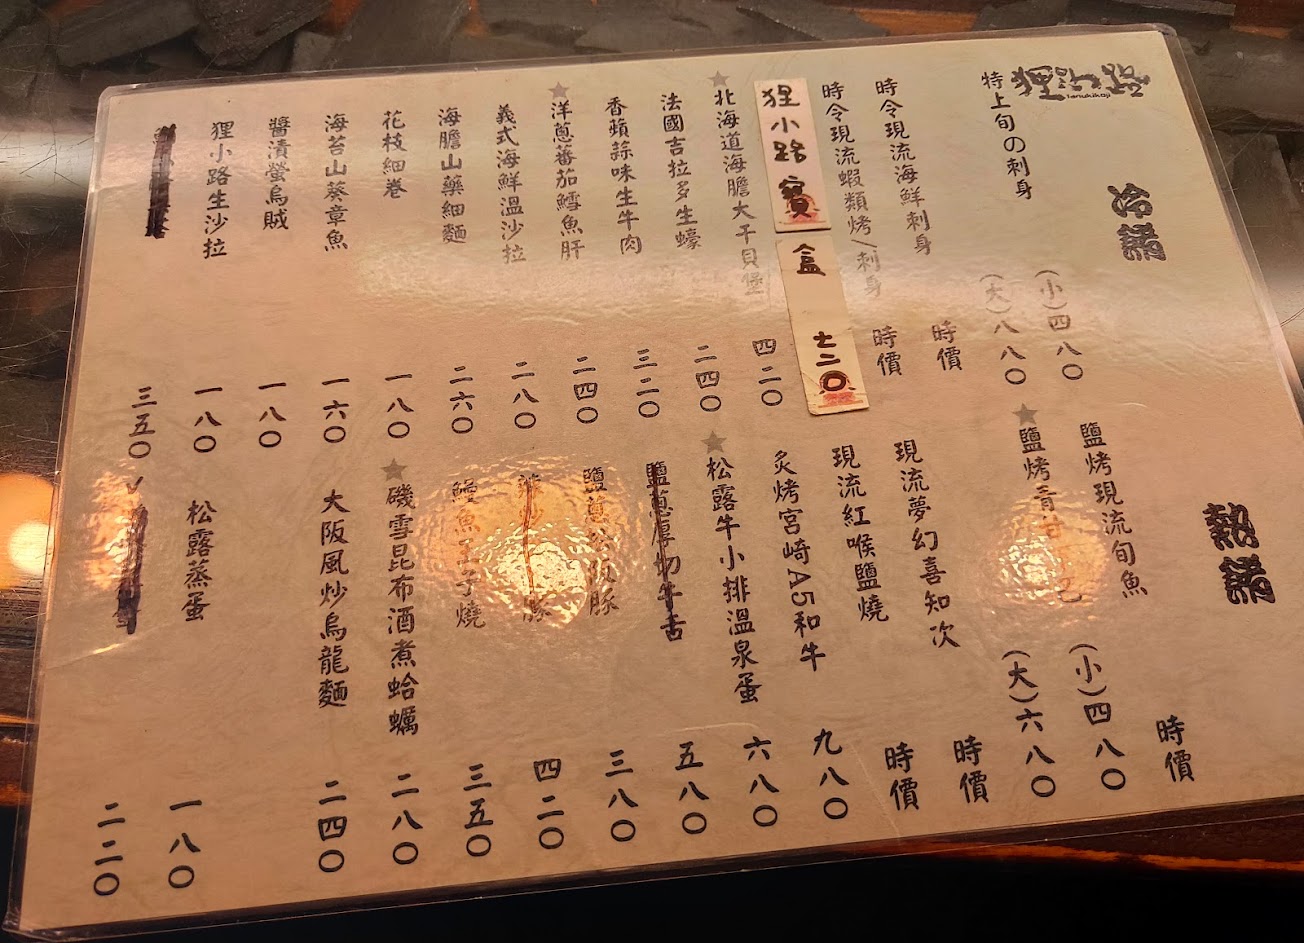 狸小路
tanukikoji
冷諸
特上旬の刺身 (小)四八〇
(大)八八〇
時令現流海鮮刺身 時價
時令現流蝦類烤/刺身 時價
狸小路寶盒 七二〇
★北海道海膽大干貝堡 四二〇
法國吉拉多生蠔 二四〇
香蘋蒜味生牛肉 三二〇
★洋蔥蕃茄鱈魚肝 二四〇
義式海鮮溫沙拉 二八〇
海膽山藥細麵 二六〇
花枝細卷 一八〇
海苔山葵章魚 一六〇
醬漬螢烏賊 一八〇
狸小路生沙拉 一八〇
三五〇
熱諸
鹽烤現流旬魚 時價
★鹽烤青甘下巴 (小)四八〇
(大)六八〇
現流夢幻喜知次 時價
現流紅喉鹽燒 時價
炙烤宮崎A5和牛 九八〇
★松露牛小排溫泉蛋 六八〇
鹽蔥厚切牛舌 五八〇
鹽蔥松阪豚 三八〇
四二〇
鰻魚玉子燒 三五〇
★磯雪昆布酒煮蛤蠣 二八〇
大阪風炒烏龍麵 二四〇
松露蒸蛋 一八〇
二二〇